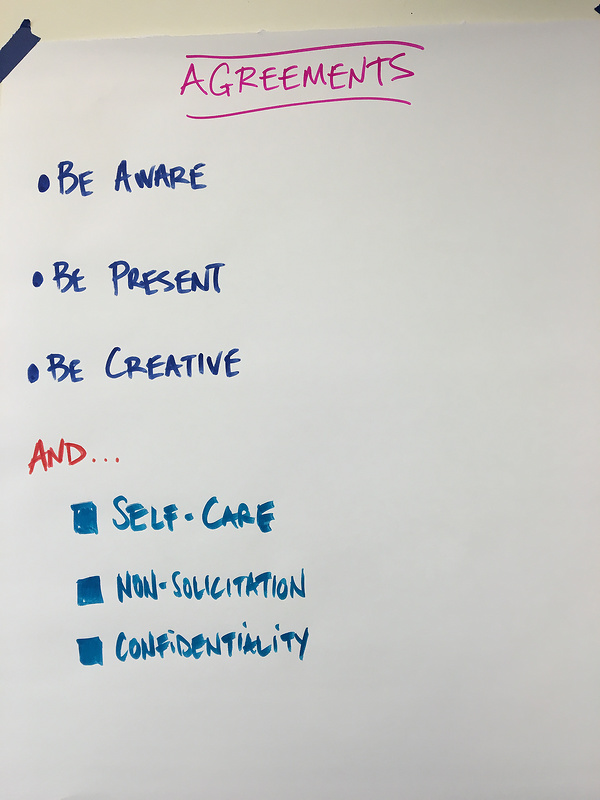 AGREEMENTS
• BE AWARE
• BE PRESENT
• BE CREATIVE
AND...
■ SELF-CARE
■ NON-SOLICITATION
■ CONFIDENTIALITY